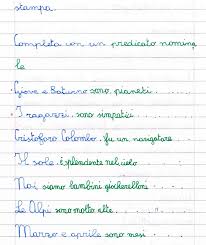 stampa.
Completa con un predicato nomina
le
Giove e Saturno sono pianeti
I ragazzi sono simpatici
Cristoforo Colombo fu un navigatore
Il sole è splendente nel cielo
Noi siamo bambini giocherelloni
Le Alpi sono molto alte
Marzo e aprile sono mesi